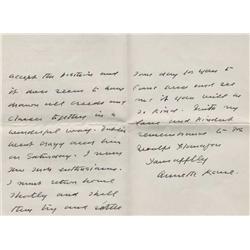 accept the position and
it does seem to have
drawn all creeds and
classes together in a
wonderful way. Dublin
went crazy over him
on Saturday. I never
saw such enthusiasm.
I must return home
shortly and I will
then try and settle
some day for you to
come over and see
me if you will be
so kind. With my
love and kindest
remembrance to Mr
Yours affectly